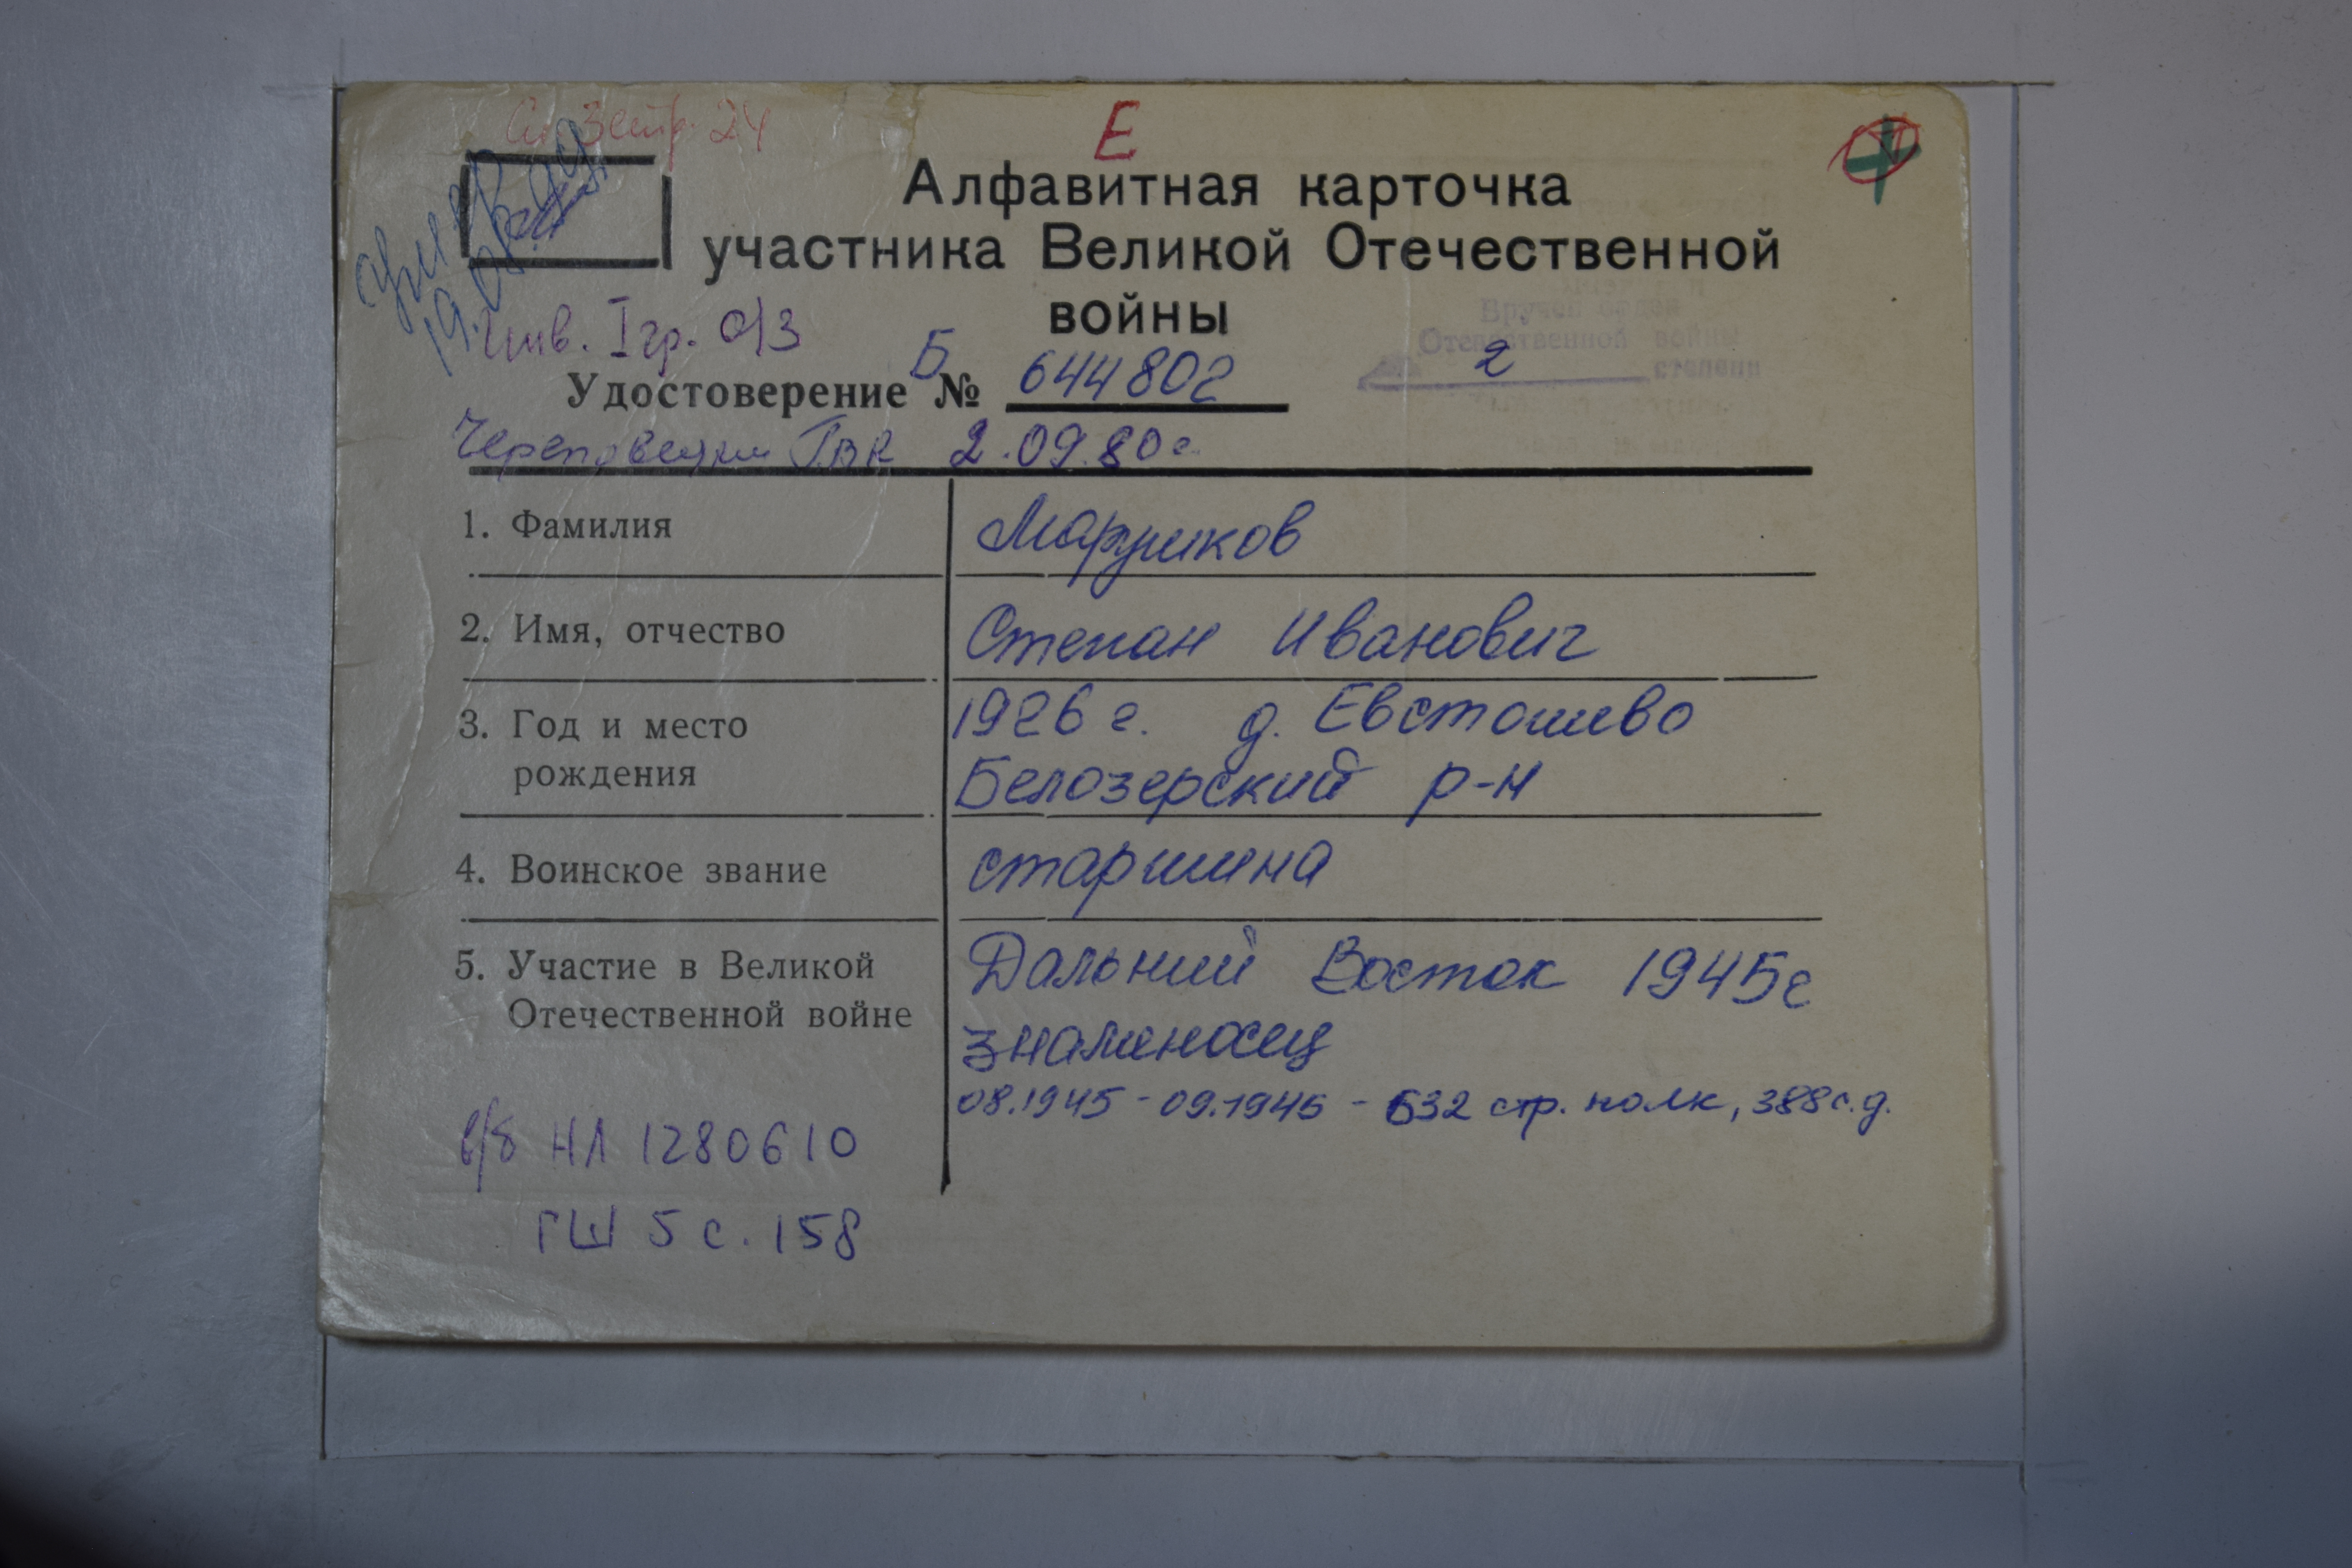 Е
Алфавитная карточка
участника Великой Отечественной
войны
умер
Инв. I гр. о/з
Вручен орден
Отечественной войны
2 степени
Удостоверение Б № 644802
Череповецким ГВК 2.09.80г.
1. Фамилия
Маруников
2. Имя, отчество
Степан Иванович
3. Год и место
рождения
1926 г. д. Евстошево
Белозерский р-н
4. Воинское звание
старшина
5. Участие в Великой
Отечественной войне
Дальний Восток 1945г
знаменосец
08.1945 - 09.1945 - 632 стр. полк, 388 с.д.
в/б НЛ 1280610
ГШ 5 с. 158